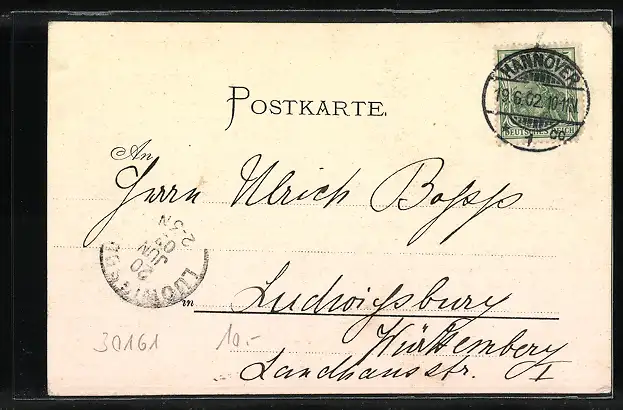 HANNOVER
19.6.02. 10-11N
1 cc
DEUTSCHES REICH
POSTKARTE.
An
Herrn Ulrich Bopp
2-3N
02
JUN
20
LUDWIGSB
in Ludwigsbury
Württemberg
Landhausstr. I
30161 10.-